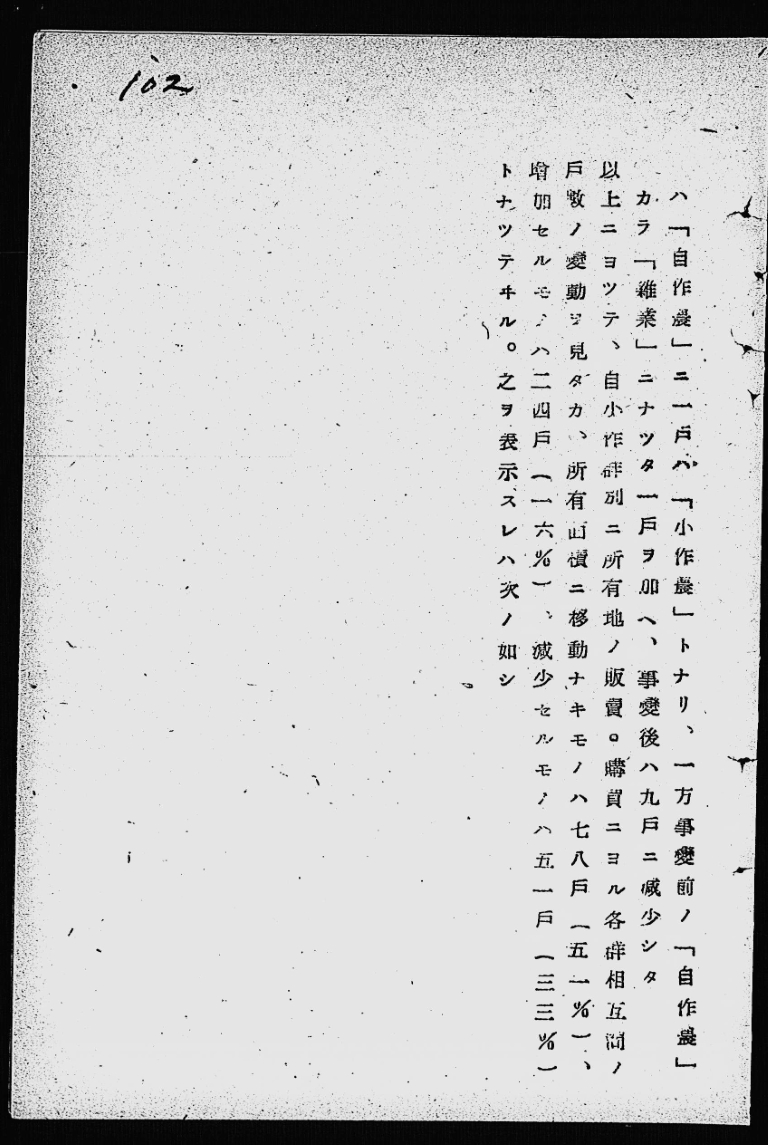 102
ハ「自作農」ニ一戸ハ「小作農」トナリ、一方事變前ノ「自作農」
カラ「雜業」ニナツタ一戸ヲ加ヘ、事變後ハ九戸ニ减少シタ
以上ニヨツテ、自小作群別ニ所有地ノ販賣。購買ニヨル各群相互間ノ
戸數ノ變動ヲ見タカ、所有面積ニ移動ナキモノハ七八戸(五一%)、
增加セルモノハ二四戸(一六%)、减少セルモノハ五一戸(三三%)
トナツテヰル。之ヲ表示スレハ次ノ如シ